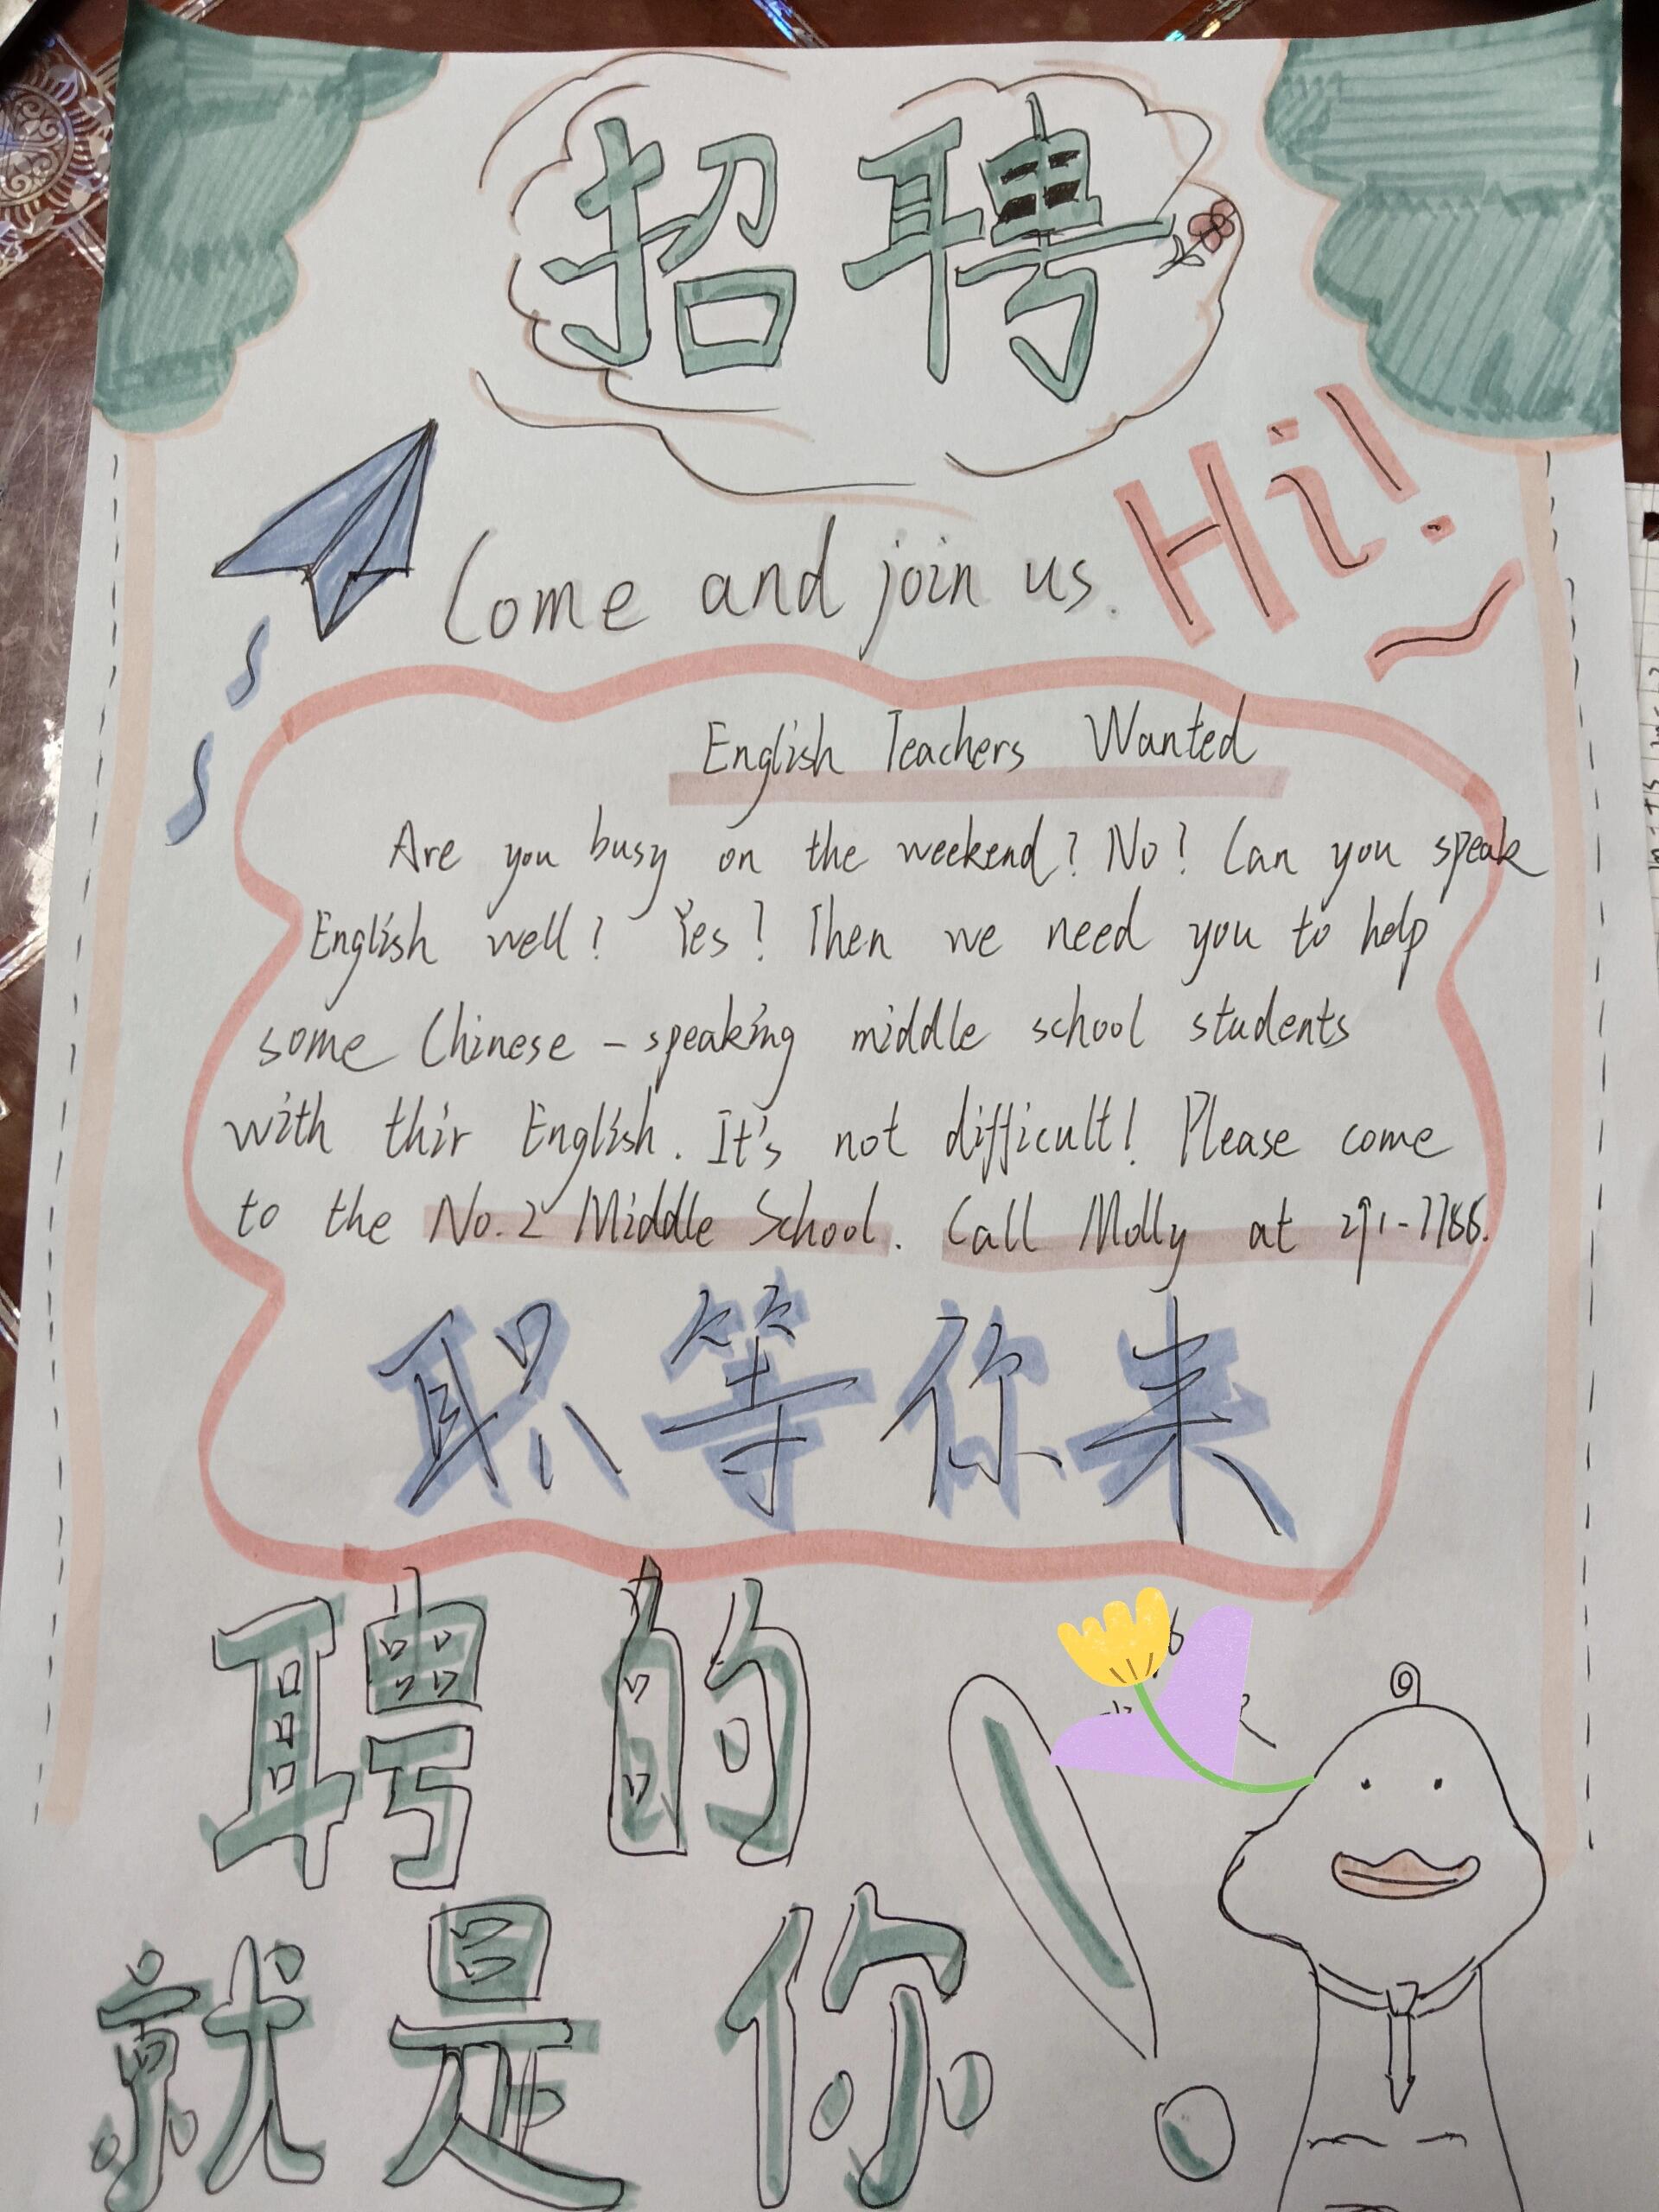 招聘
Hi!
Come and join us.
English Teachers Wanted
Are you busy on the weekend? No! Can you speak
English well? Yes! Then we need you to help
some Chinese-speaking middle school students
with thir English. It's not difficult! Please come
to the No.2 Middle School. Call Molly at
职等你来
聘的
就是你!